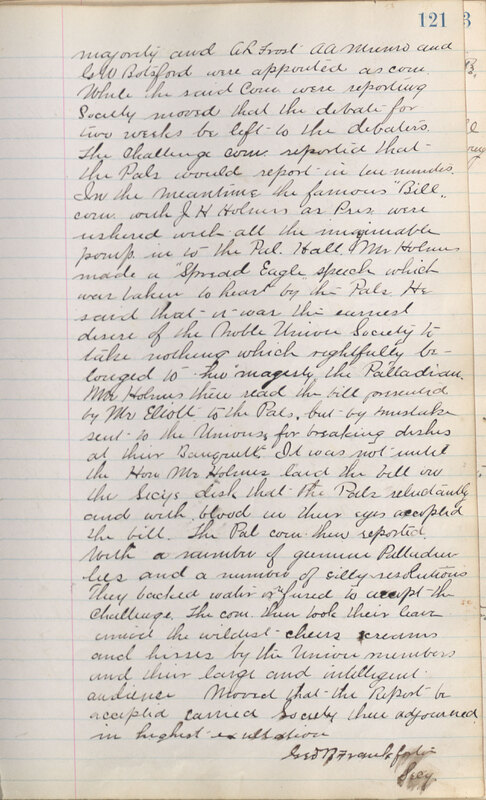 121
majority and A R Frost A A Munro and
G W Botsford were appointed as com.
While the said Com were reporting
Society moved that the debate for
two weeks be left to the debaters.
The Challenge com. reported that
the Pals would report in ten minutes.
In the meantime the famous "Bill"
com. with J H Holmes as Pres. were
ushered with all the imaginable
pomp in to the Pal. Hall. Mr Holmes
made a "Spread Eagle speech which
was taken to heart by the Pals. He
said that it was the earnest
desire of the Noble Union Society to
take nothing which rightfully be-
longed to The "magesty the Palladian.
Mr Holmes then read the bill presented
by Mr Eliott to the Pals, but by mistake
sent to the Unions, for breaking dishes
at their Banquett. It was not until
the Hon Mr Holmes laid the bill on
the Secys desk that the Pals reluctantly
and with blood in their eyes accepted
the bill. The Pal com then reported
With a number of genuine Palladian
lies and a number of silly resolutions
They backed water refused to accept the
challenge. The com. then took their leave
amid the wildest cheers screams
and hisses by the Union members
and their large and intelligent
audience Moved that the Report be
accepted carried Society then adjourned
in highest exultation
Geo B Frankforter
Secy.